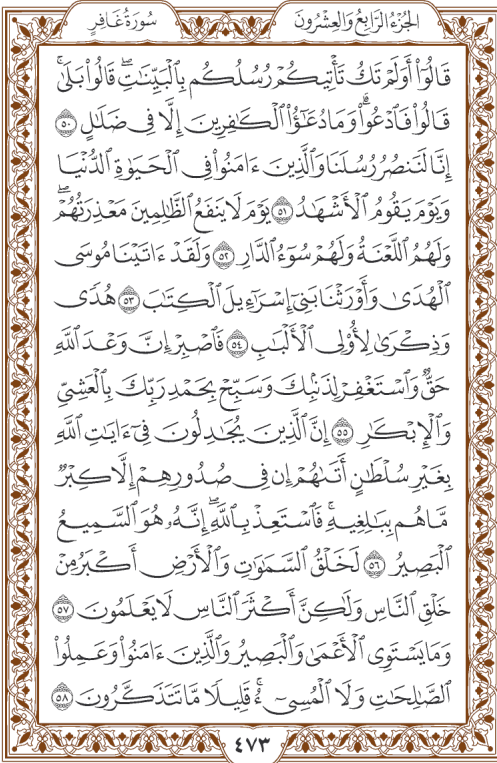 الجُزْءُ الرَّابِعُ وَالعِشْرُونَ سُورَةُ غَافِرٍ
قَالُوٓا۟ أَوَلَمْ تَكُ تَأْتِيكُمْ رُسُلُكُم بِٱلْبَيِّنَٰتِۖ قَالُوا۟ بَلَىٰۚ
قَالُوا۟ فَٱدْعُوا۟ۗ وَمَا دُعَٰٓؤُا۟ ٱلْكَٰفِرِينَ إِلَّا فِى ضَلَٰلٍ ٥٠
إِنَّا لَنَنصُرُ رُسُلَنَا وَٱلَّذِينَ ءَامَنُوا۟ فِى ٱلْحَيَوٰةِ ٱلدُّنْيَا
وَيَوْمَ يَقُومُ ٱلْأَشْهَٰدُ ٥١ يَوْمَ لَا يَنفَعُ ٱلظَّٰلِمِينَ مَعْذِرَتُهُمْۖ
وَلَهُمُ ٱللَّعْنَةُ وَلَهُمْ سُوٓءُ ٱلدَّارِ ٥٢ وَلَقَدْ ءَاتَيْنَا مُوسَى
ٱلْهُدَىٰ وَأَوْرَثْنَا بَنِىٓ إِسْرَٰٓءِيلَ ٱلْكِتَٰبَ ٥٣ هُدًى
وَذِكْرَىٰ لِأُو۟لِى ٱلْأَلْبَٰبِ ٥٤ فَٱصْبِرْ إِنَّ وَعْدَ ٱللَّهِ
حَقٌّ وَٱسْتَغْفِرْ لِذَنۢبِكَ وَسَبِّحْ بِحَمْدِ رَبِّكَ بِٱلْعَشِىِّ
وَٱلْإِبْكَٰرِ ٥٥ إِنَّ ٱلَّذِينَ يُجَٰدِلُونَ فِىٓ ءَايَٰتِ ٱللَّهِ
بِغَيْرِ سُلْطَٰنٍ أَتَىٰهُمْۙ إِن فِى صُدُورِهِمْ إِلَّا كِبْرٌ
مَّا هُم بِبَٰلِغِيهِۚ فَٱسْتَعِذْ بِٱللَّهِۖ إِنَّهُۥ هُوَ ٱلسَّمِيعُ
ٱلْبَصِيرُ ٥٦ لَخَلْقُ ٱلسَّمَٰوَٰتِ وَٱلْأَرْضِ أَكْبَرُ مِنْ
خَلْقِ ٱلنَّاسِ وَلَٰكِنَّ أَكْثَرَ ٱلنَّاسِ لَا يَعْلَمُونَ ٥٧
وَمَا يَسْتَوِى ٱلْأَعْمَىٰ وَٱلْبَصِيرُ وَٱلَّذِينَ ءَامَنُوا۟ وَعَمِلُوا۟
ٱلصَّٰلِحَٰتِ وَلَا ٱلْمُسِىٓءُۚ قَلِيلًا مَّا تَتَذَكَّرُونَ ٥٨
٤٧٣